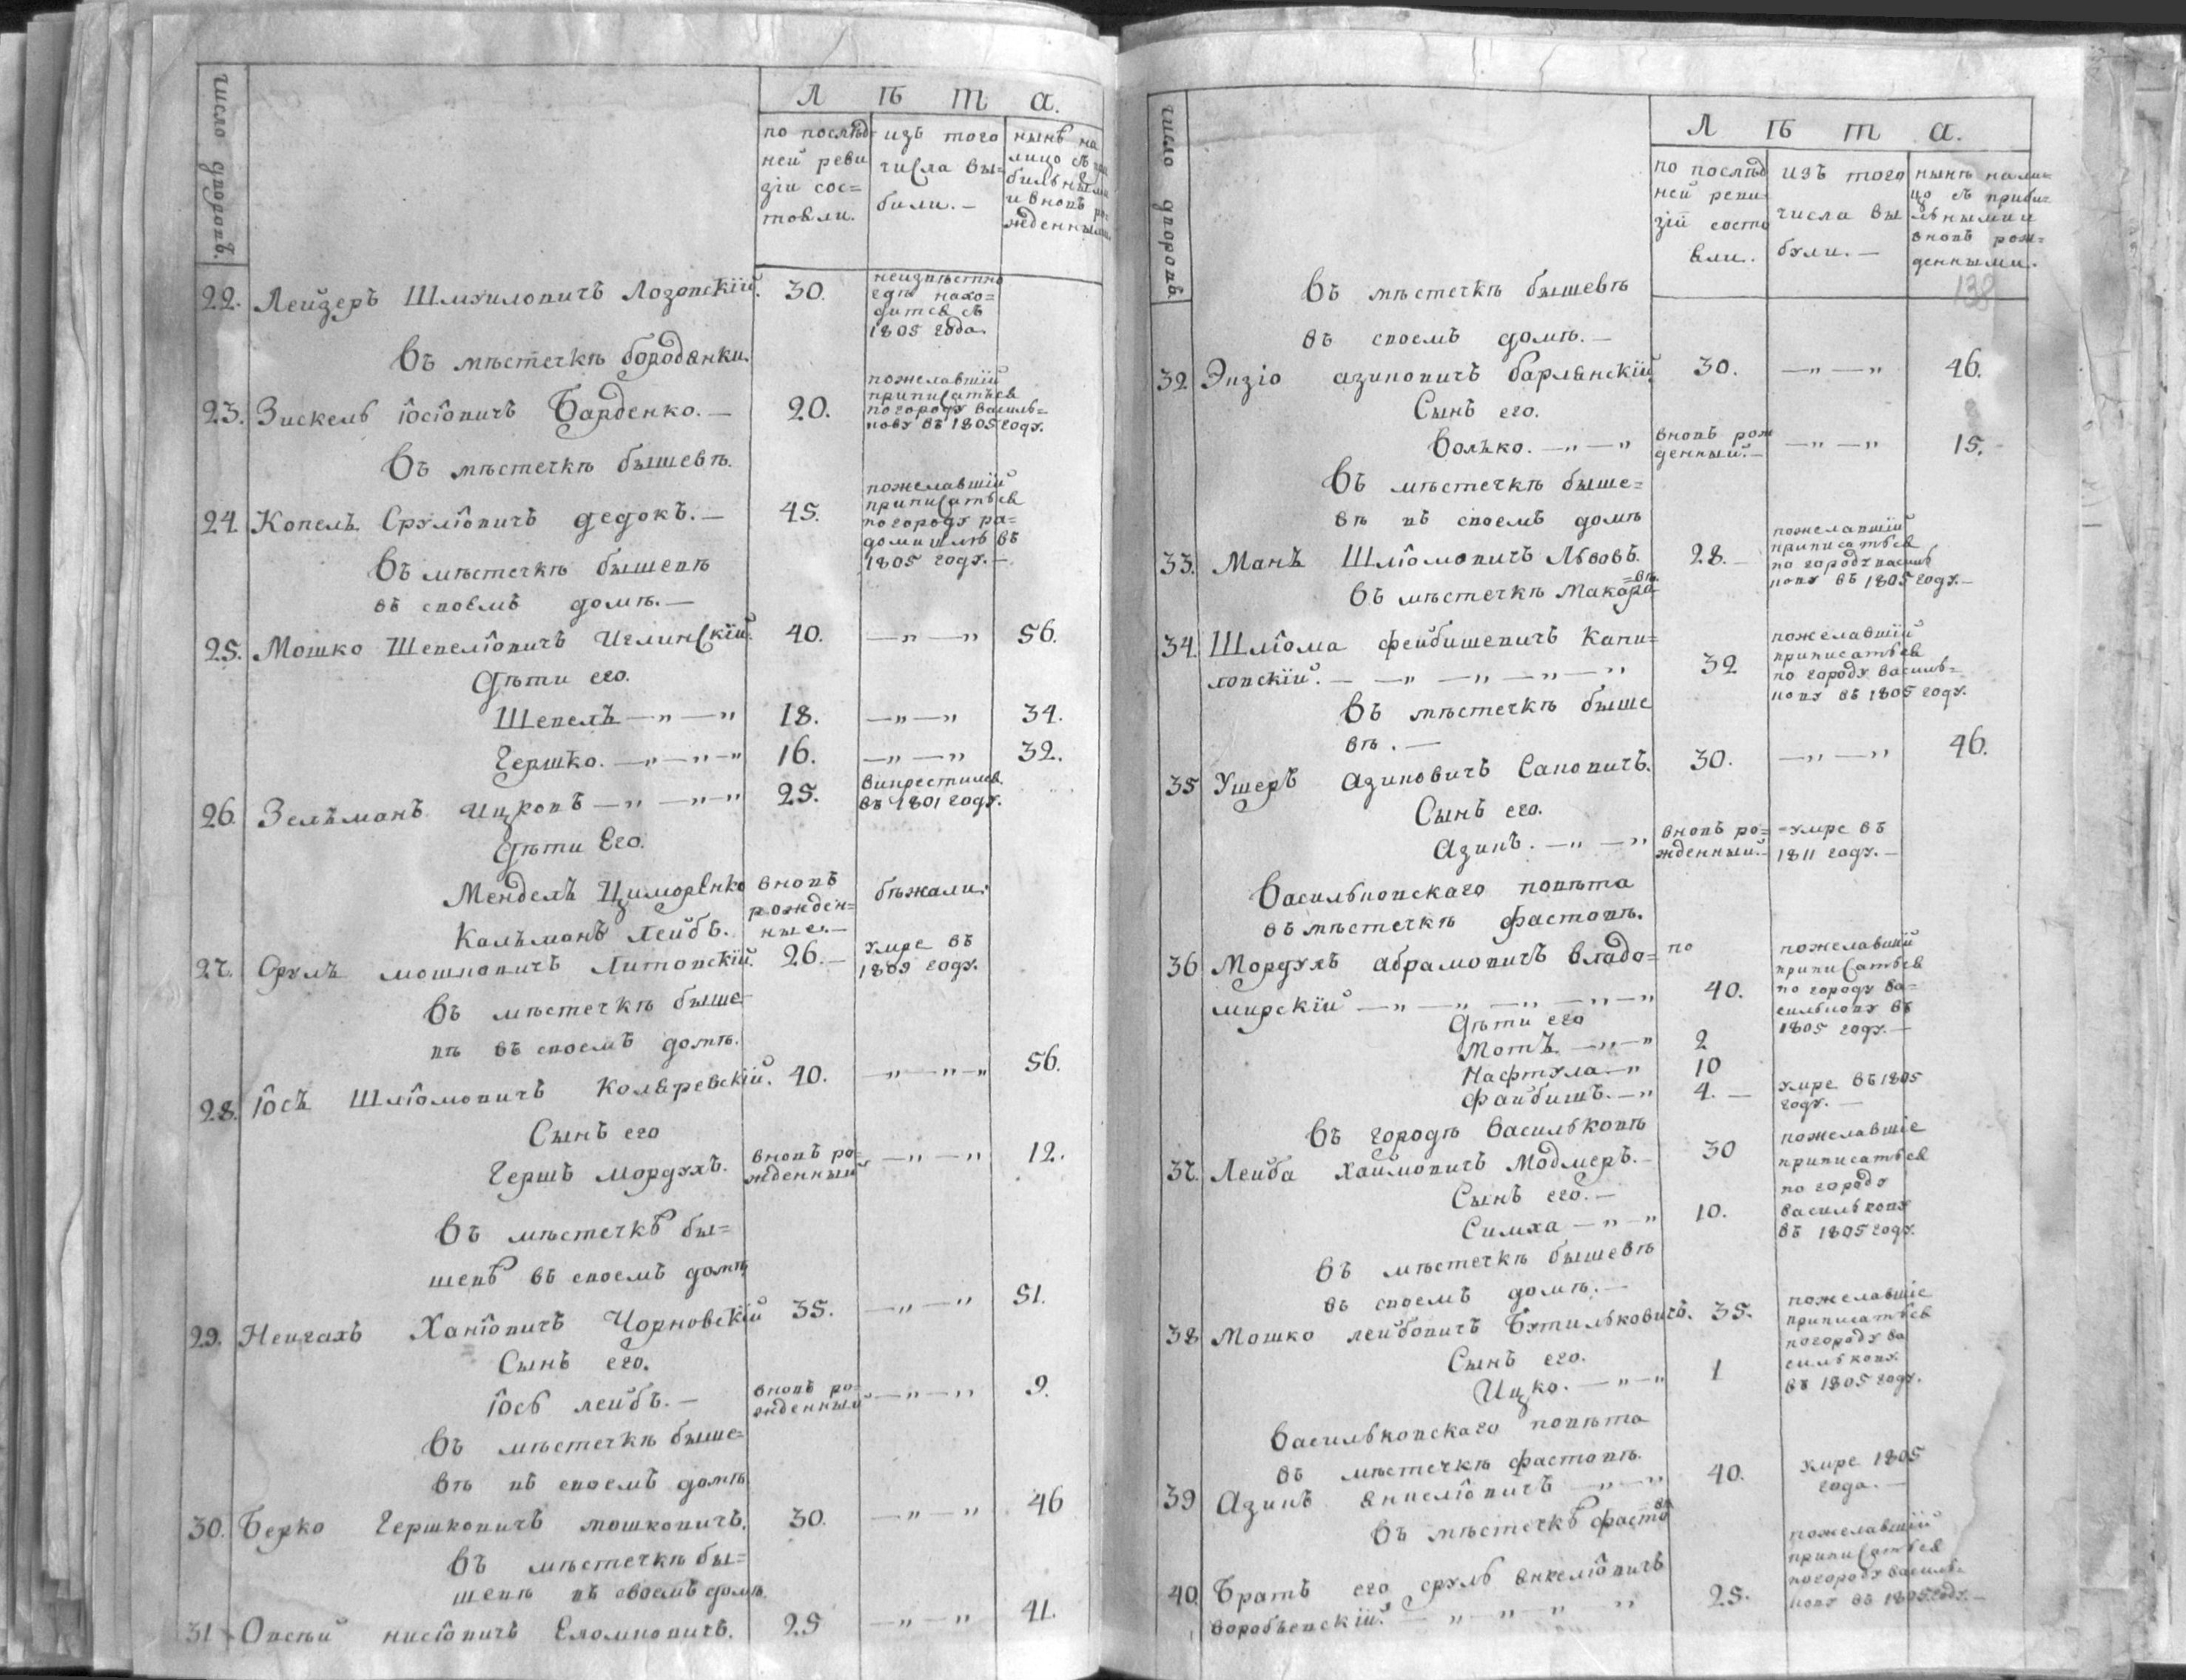 число дворовъ.
Л ѣ т а.
по послѣд- изъ того нынѣ на
ней реви числа вы- лицо съ
зіи сос= были. — бильными
товли. и вновь ро
жденными.
22. Лейзеръ Шмуиловичъ Лозовскій. 30. неизвѣстно
гдѣ нахо=
дитсѧ съ
1805 года.
Въ мѣстечкѣ бородѧнки.
23. Зискель Іосіовичъ Барденко. — 20. пожелавшій
приписатьсѧ
погороду василь=
кову въ 1805 году.
Въ мѣстечкѣ бышевѣ.
24. Копель Срулїовичъ дедокъ. — 45. пожелавшій
приписатьсѧ
погороду ра=
домишлю въ
1805 году. —
Въ мѣстечкѣ бышевѣ
въ своемъ домѣ. —
25. Мошко Шепелїовичъ Иглинскїй. 40. — „ — „ 56.
Дѣти его.
Шепель — „ — „ 18. — „ — „ 34.
Гершко. — „ — „ — „ 16. — „ — „ 32.
26. Зельманъ Ицковъ — „ — „ — „ 25. викрестилсѧ
въ 1801 году.
Дѣти Его.
Мендель Цимеренко вновь бѣжали.
рожден=
Кальманъ Лейбъ. ные. —
27. Сруль мошковичъ Литовскїй. 26. — умре въ
1809 году.
Въ мѣстечкѣ быше
вѣ въ своемъ домѣ.
28. Іосъ Шлїомовичъ Колѧревскїй. 40. — „ — „ — „ 56.
Сынъ его
Гершъ мордухъ. вновь ро= — „ — „ 12.
жденный
Въ мѣстечкѣ бы=
шевѣ въ своемъ домѣ
29. Неигахъ Ханїовичъ Чорновскїй 35. — „ — „ 51.
Сынъ его.
Іось лейбъ. — вновь ро= — „ — „ 9.
жденный
Въ мѣстечкѣ быше=
вѣ въ своемъ домѣ
30. Берко Гершковичъ мошковичъ. 30. — „ — „ 46
Въ мѣстечкѣ бы=
шевѣ въ своемъ домѣ.
31 Овсѣй нисїовичъ Еломновичъ. 25 — „ — „ 41.
число дворовъ.
Л ѣ т а.
по послѣд изъ того нынѣ нали=
ней реви числа вы цо съ прибы=
зїй состо были. — льными и
ѧли. вновь рож=
денными.
138
Въ мѣстечкѣ бышевѣ
въ своемъ домѣ. —
32. Энзїо азиковичъ барлѧнскїй. 30. — „ — „ 46.
Сынъ его.
Волько. — „ — „ вновь рож — „ — „ 15. -
денный. —
Въ мѣстечкѣ быше=
вѣ въ своемъ домѣ
33. Манъ Шлїомовичъ Львовъ. 28. — пожелавшїй
приписатьсѧ
по городу василь
кову въ 1805 году. —
Въ мѣстечкѣ Макаро=вѣ.
34. Шлїома фейбишевичъ Капи= пожелавшїй
ловскїй. — — „ — „ — „ — „ 32 приписатьсѧ
по городу василь=
кову въ 1805 году.
Въ мѣстечкѣ быше
вѣ. —
35 Ушеръ азиковичъ Сановичъ. 30. — „ — „ 46.
Сынъ его.
Азикъ. — „ — „ вновь ро= умре въ
жденный. — 1811 году. —
Васильковскаго повѣта
въ мѣстечкѣ фастовѣ.
36 Мордухъ абрамовичъ владо= по пожелавшїй
мирскїй — „ — „ — „ — „ — „ 40. приписатьсѧ
по городу ва=
силькову въ
1805 году. —
Дѣти его
Мотъ. — „ — „ 2
Нафтула. — „ 10
Файбишъ. — „ 4. — умре въ 1805
году. —
Въ городѣ Васильковѣ
37. Лейба хаймовичъ Модмеръ. — 30 пожелавшїе
приписатьсѧ
по городу
василькову
въ 1805 году.
Сынъ его. —
Симха — „ — „ 10.
Въ мѣстечкѣ бышевѣ
въ своемъ домѣ. —
38 Мошко лейбовичъ Бутильковичъ. 35. пожелавшїе
приписатьсѧ
погороду ва
силькову.
въ 1805 году.
Сынъ его.
Ицко. — „ — „ 1
Васильковскаго повѣта
въ мѣстечкѣ фастовѣ.
39 Азикъ ѧнкелїовичъ — „ — „ 40. умре 1805
года. —
Въ мѣстечкѣ фастовѣ
40. Братъ его сруль ѧнкелїовичъ пожелавшїй
воробьевскїй. — „ — „ — „ — „ 25. приписатьсѧ
погороду василь=
кову въ 1805 году. —